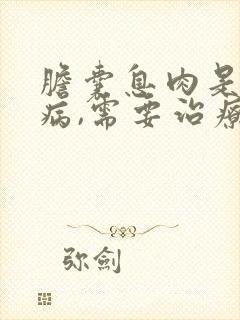 膽囊息肉是
病,需要治療
弥劍